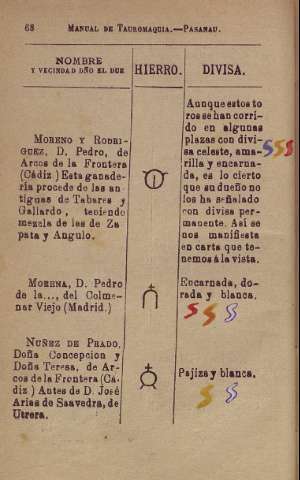 68 MANUAL DE TAUROMAQUIA.—PASANAU.
NOMBRE
Y VECINDAD DÑO EL DUE
HIERRO.
DIVISA.
MORENO Y RODRI-
GUEZ, D. Pedro, de
Arcos de la Frontera
(Cádiz) Esta ganade-
ría procede de las an-
tiguas de Tabares y
Gallardo, teniendo
mezcla de las de Za-
pata y Angulo.
Aunque estos to
ros se han corri-
do en algunas
plazas con divi-
sa celeste, ama-
rilla y encarna-
da, es lo cierto
que su dueño no
los ha señalado
con divisa per-
manente. Así se
nos manifiesta
en carta que te-
nemos á la vista.
MORENA, D. Pedro
de la..., del Colme-
nar Viejo (Madrid.)
Encarnada, do-
rada y blanca.
NUÑEZ DE PRADO,
Doña Concepcion y
Doña Teresa, de Ar-
cos de la Frontera (Cá-
diz) Antes de D. José
Arias de Saavedra, de
Utrera.
Pajiza y blanca.